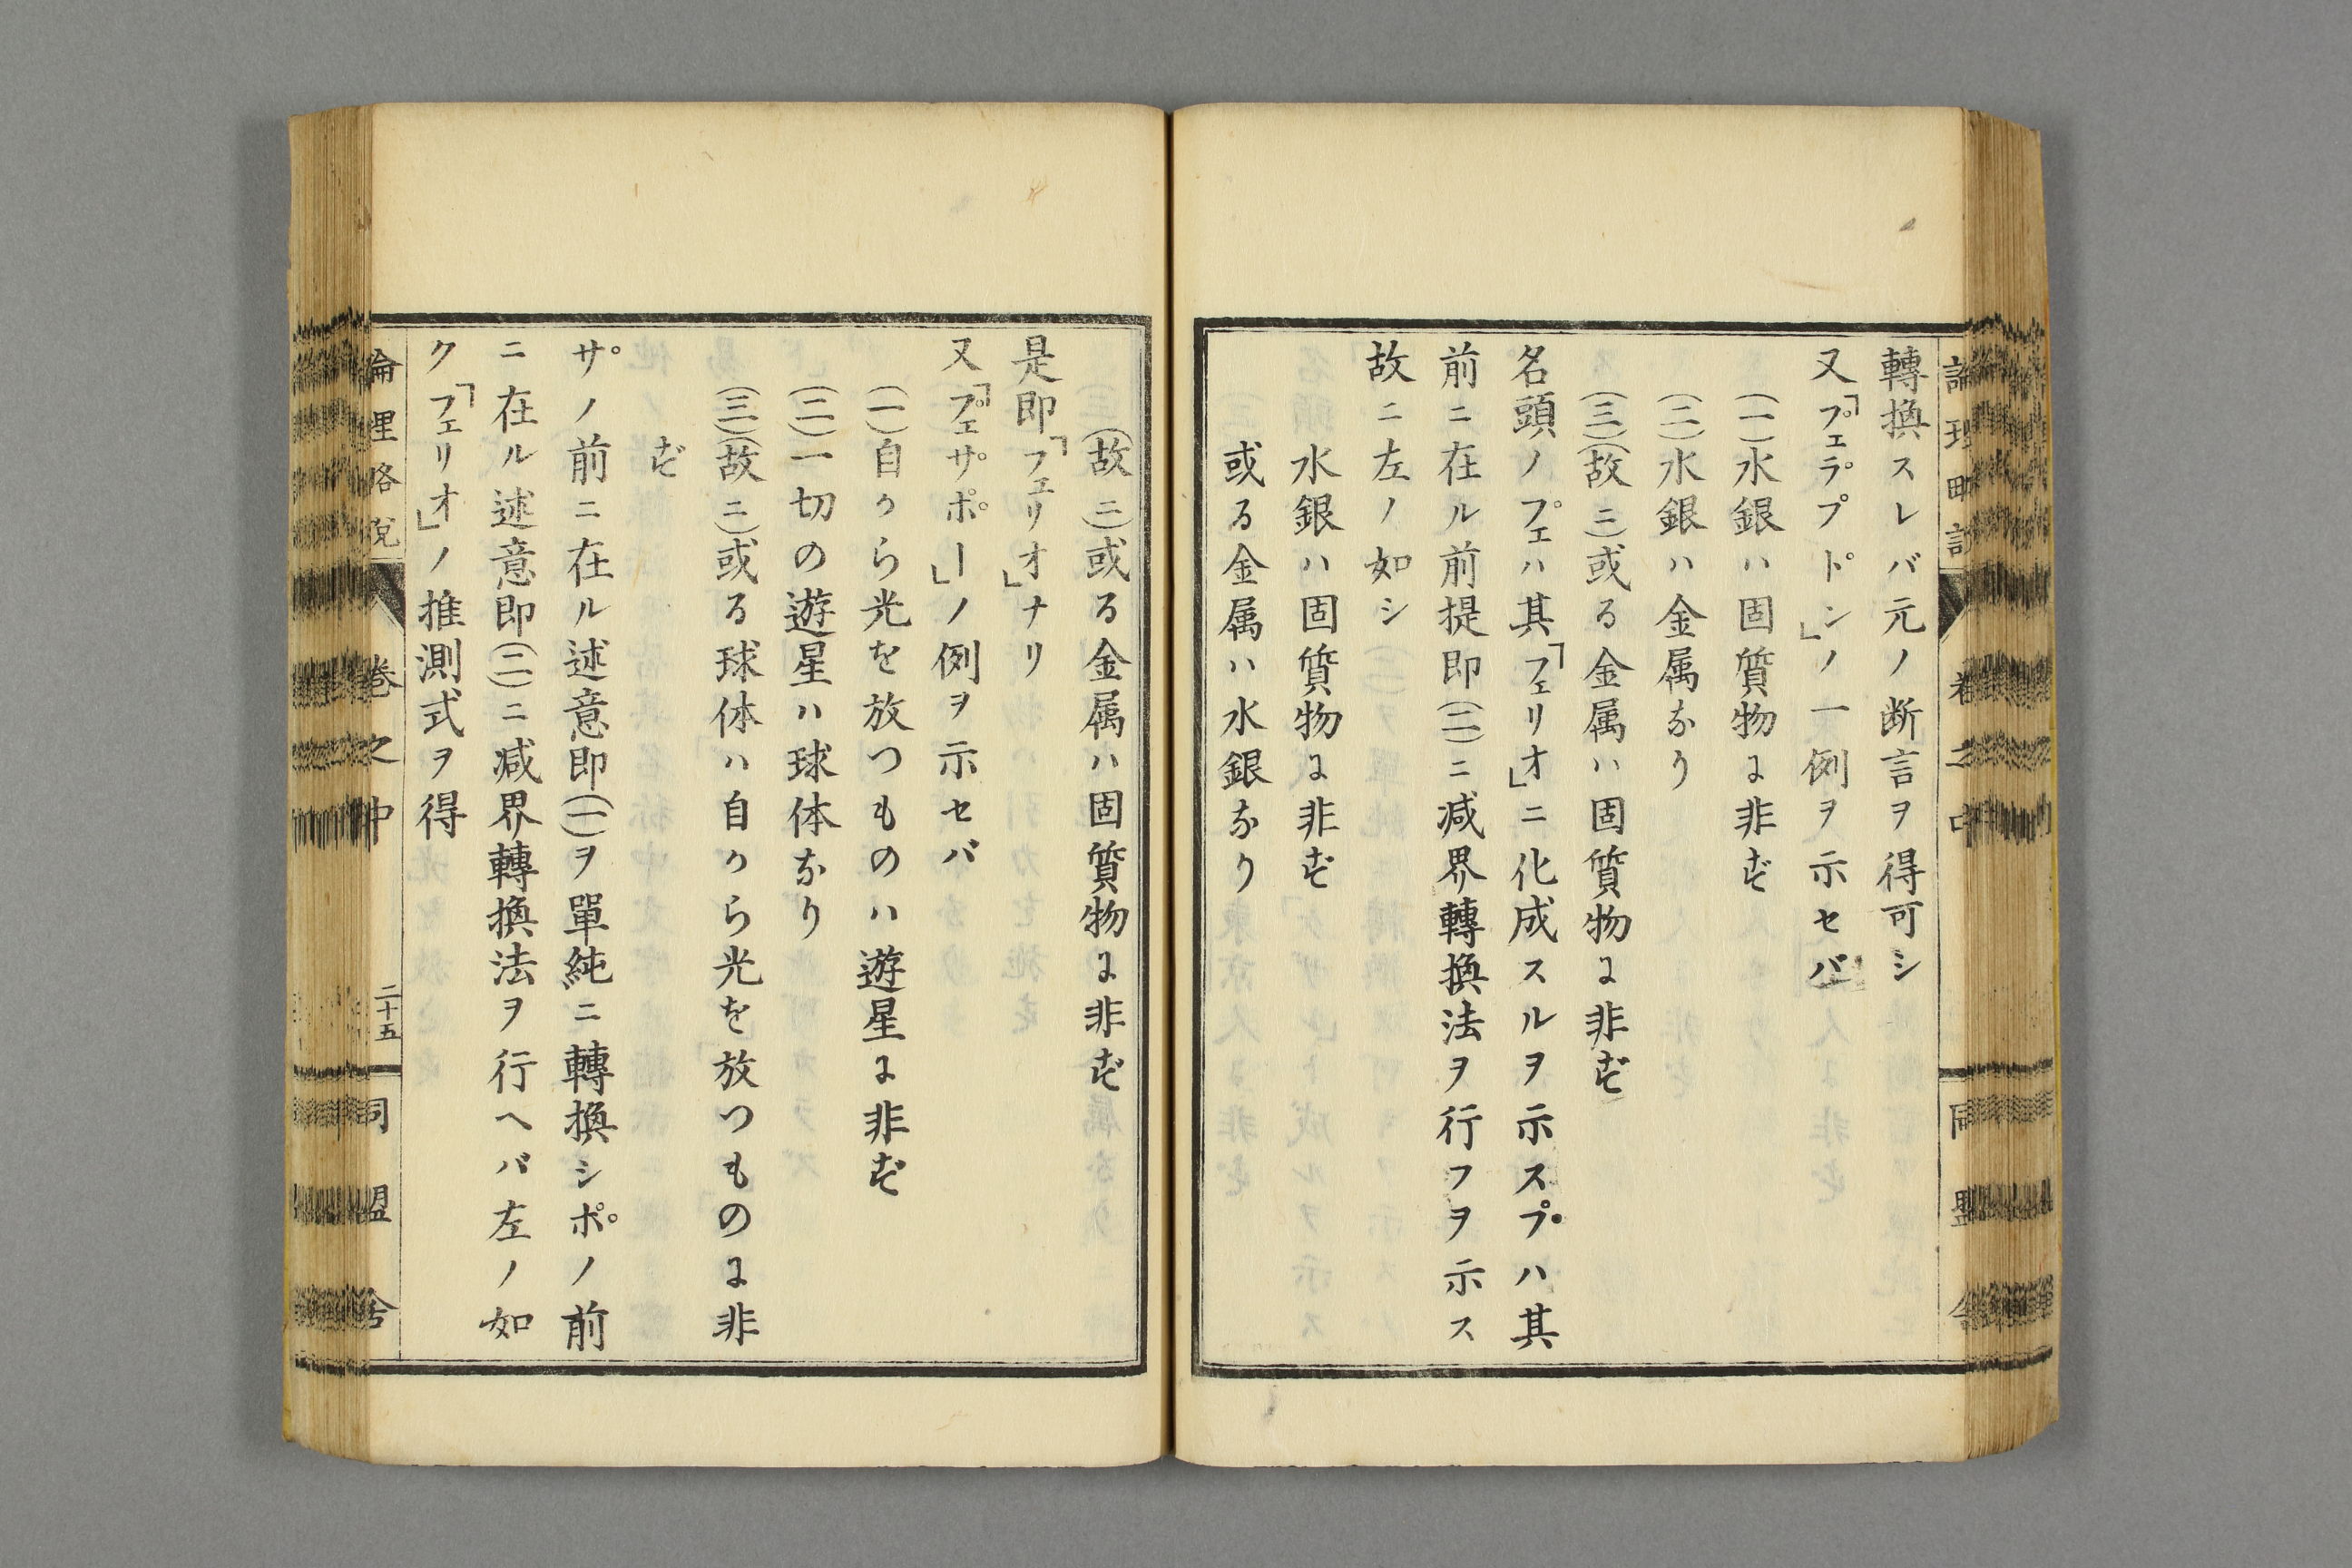 轉換スレバ元ノ断言ヲ得可シ
又「プェラ゚プドン」ノ一例ヲ示セバ
(一)水銀ハ固質物に非ず
(二)水銀ハ金属なり
(三)(故ニ)或る金属ハ固質物に非ず
名頭ノプェハ其「フェリオ」ニ化成スルヲ示スプハ其
前ニ在ル前提即(二)ニ減界轉換法ヲ行フヲ示ス
故ニ左ノ如シ
水銀ハ固質物に非ず
或る金属ハ水銀なり
(三)(故ニ)或る金属ハ固質物に非ず
是即「フェリオ」ナリ
又「プェサ゚ポー」ノ例ヲ示セバ
(一)自から光を放つものハ遊星に非ず
(二)一切の遊星ハ球体なり
(三)(故ニ)或る球体ハ自から光を放つものに非
ず
サ゚ノ前ニ在ル述意即(一)ヲ單純ニ轉換シポノ前
ニ在ル述意即(二)ニ減界轉換法ヲ行ヘバ左ノ如
ク「フェリオ」ノ推測式ヲ得
論理略説 巻之中 二十五 同盟舎